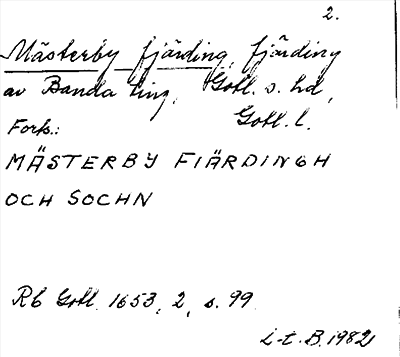 2.
Mästerby fjärding, fjärding
av Banda ting, Gotl. s. hd,
Fork.: Gotl. l.
MÄSTERBY FIÄRDINGH
OCH SOCHN
Rb Gotl. 1653, 2, s. 99
i-t. B. 1982